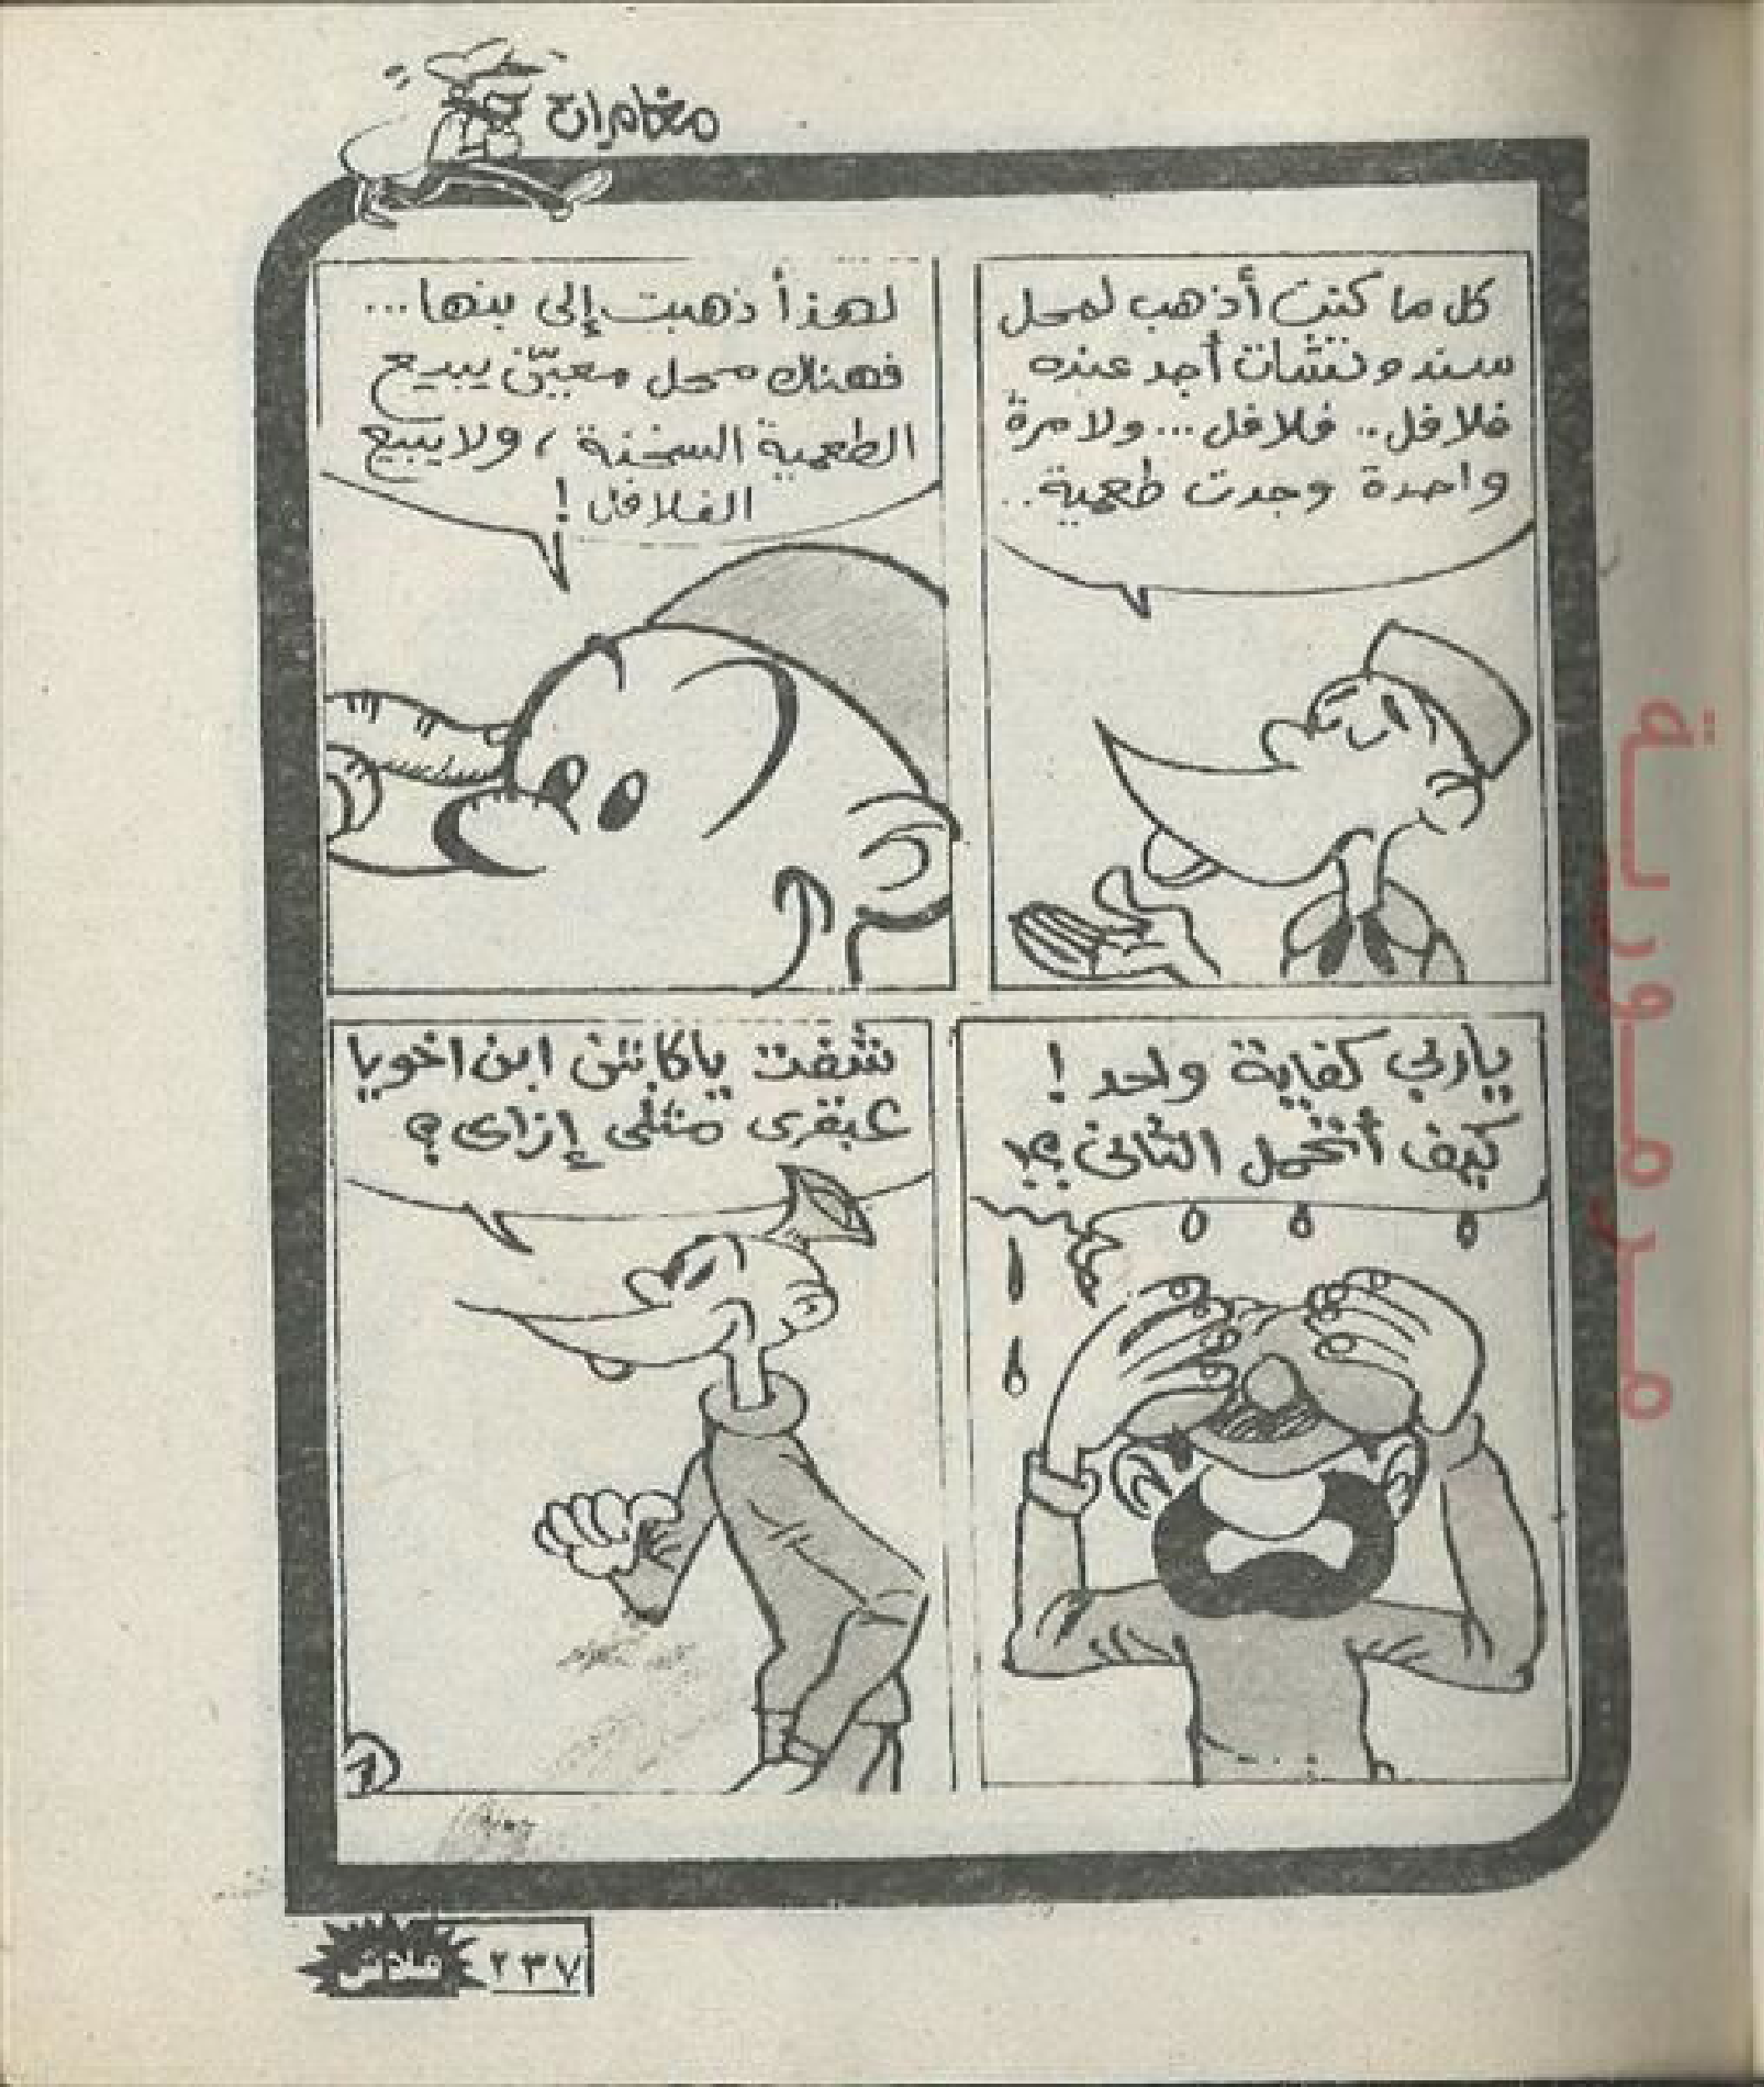 مغامرات
كل ما كنت أذهب لمحل
سندوتشات أجد عنده
فلافل.. فلافل... ولا مرة
واحدة وجدت طعمية..
لهذا ذهبت إلى بنها...
فهناك محل معيّن يبيع
الطعمية السخنة، ولا يبيع
الفلافل!
يا ربي كفاية واحد!
كيف أتحمل الثاني؟!
شفت يا كابتن ابن اخويا
عبقرى مثلى إزاى؟
فلاش ٢٣٧
مرمورية